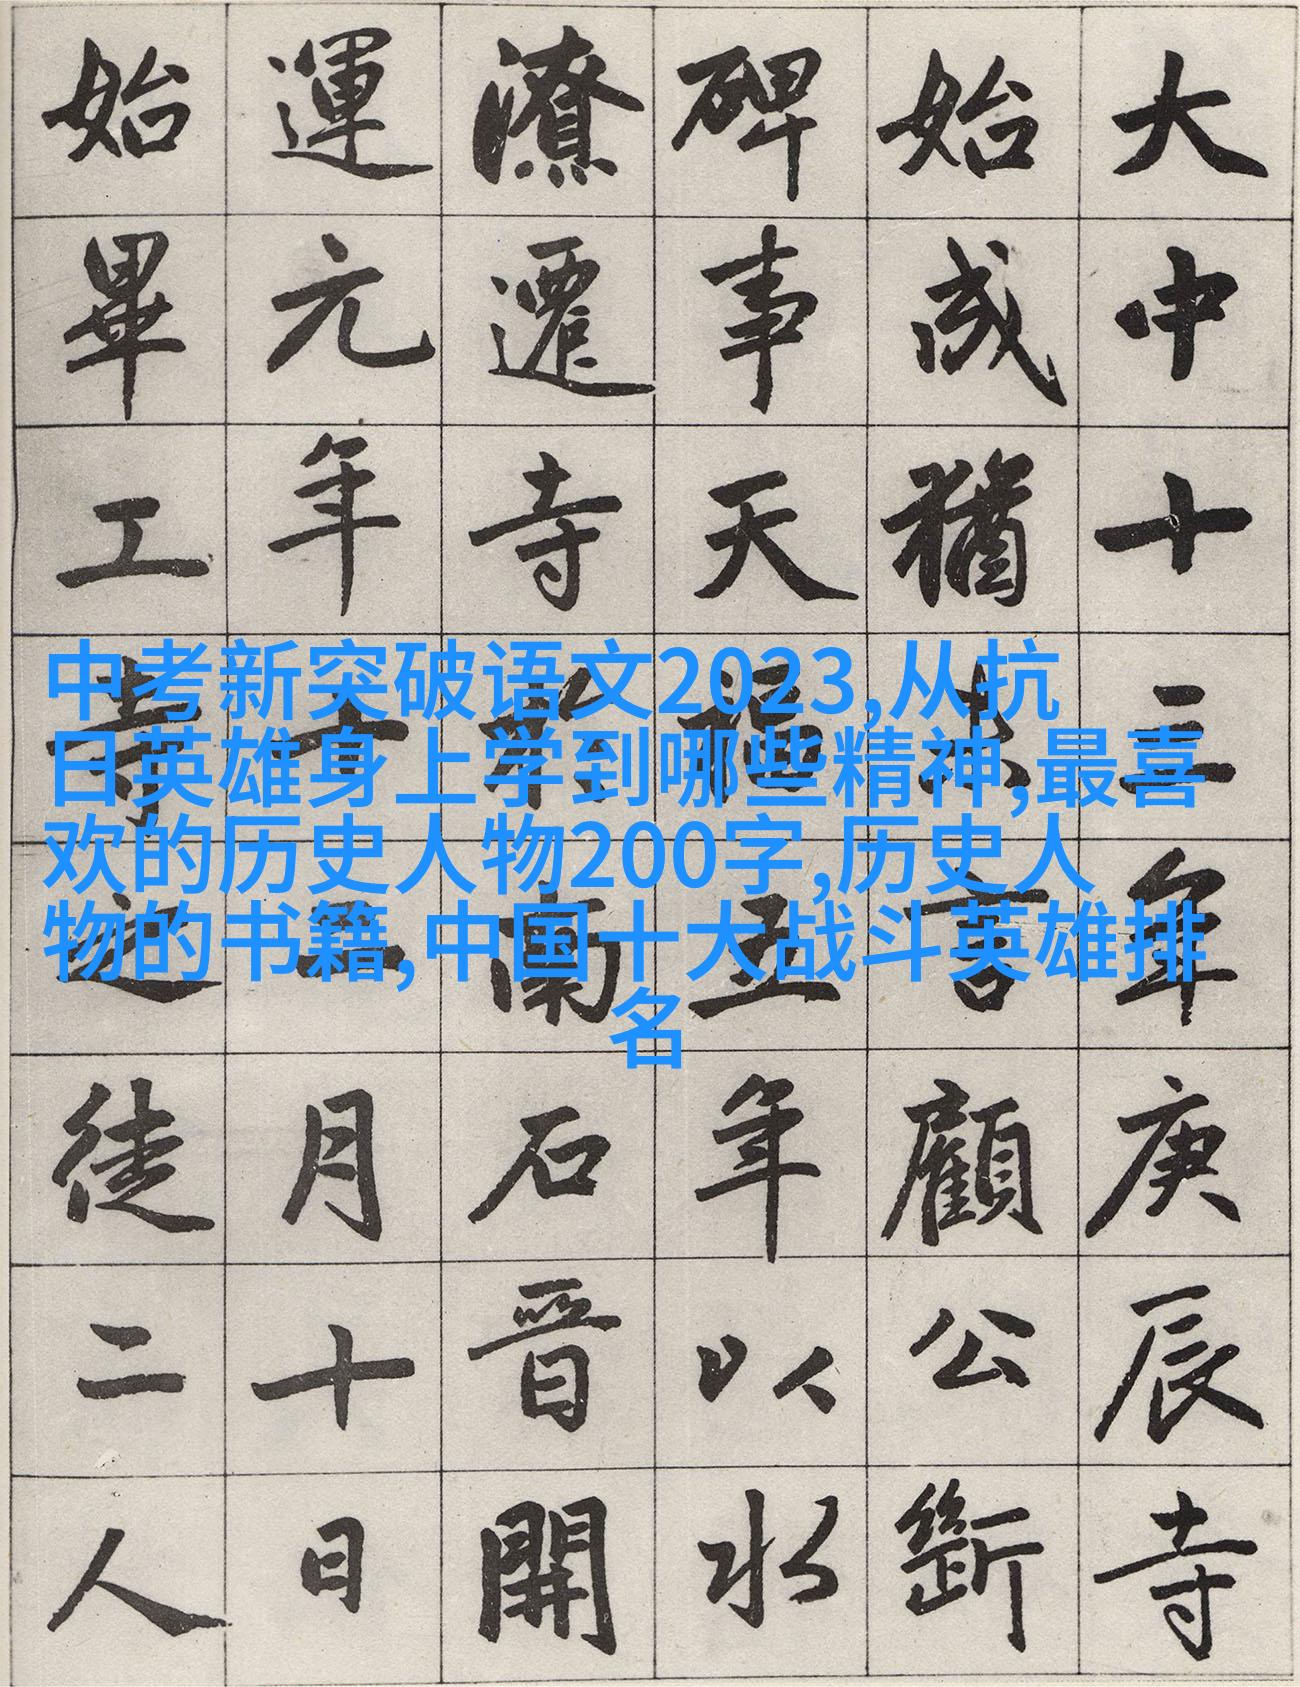 大中十三年庚辰寺
始成猶未言顧公斷
碑事天福五年以水
潦遷寺於南石晉開
運元年十二月十日
始畢工寺之徒二人
中考新突破语文2023,从抗
日英雄身上学到哪些精神,最喜
欢的历史人物200字,历史人
物的书籍,中国十大战斗英雄排
名